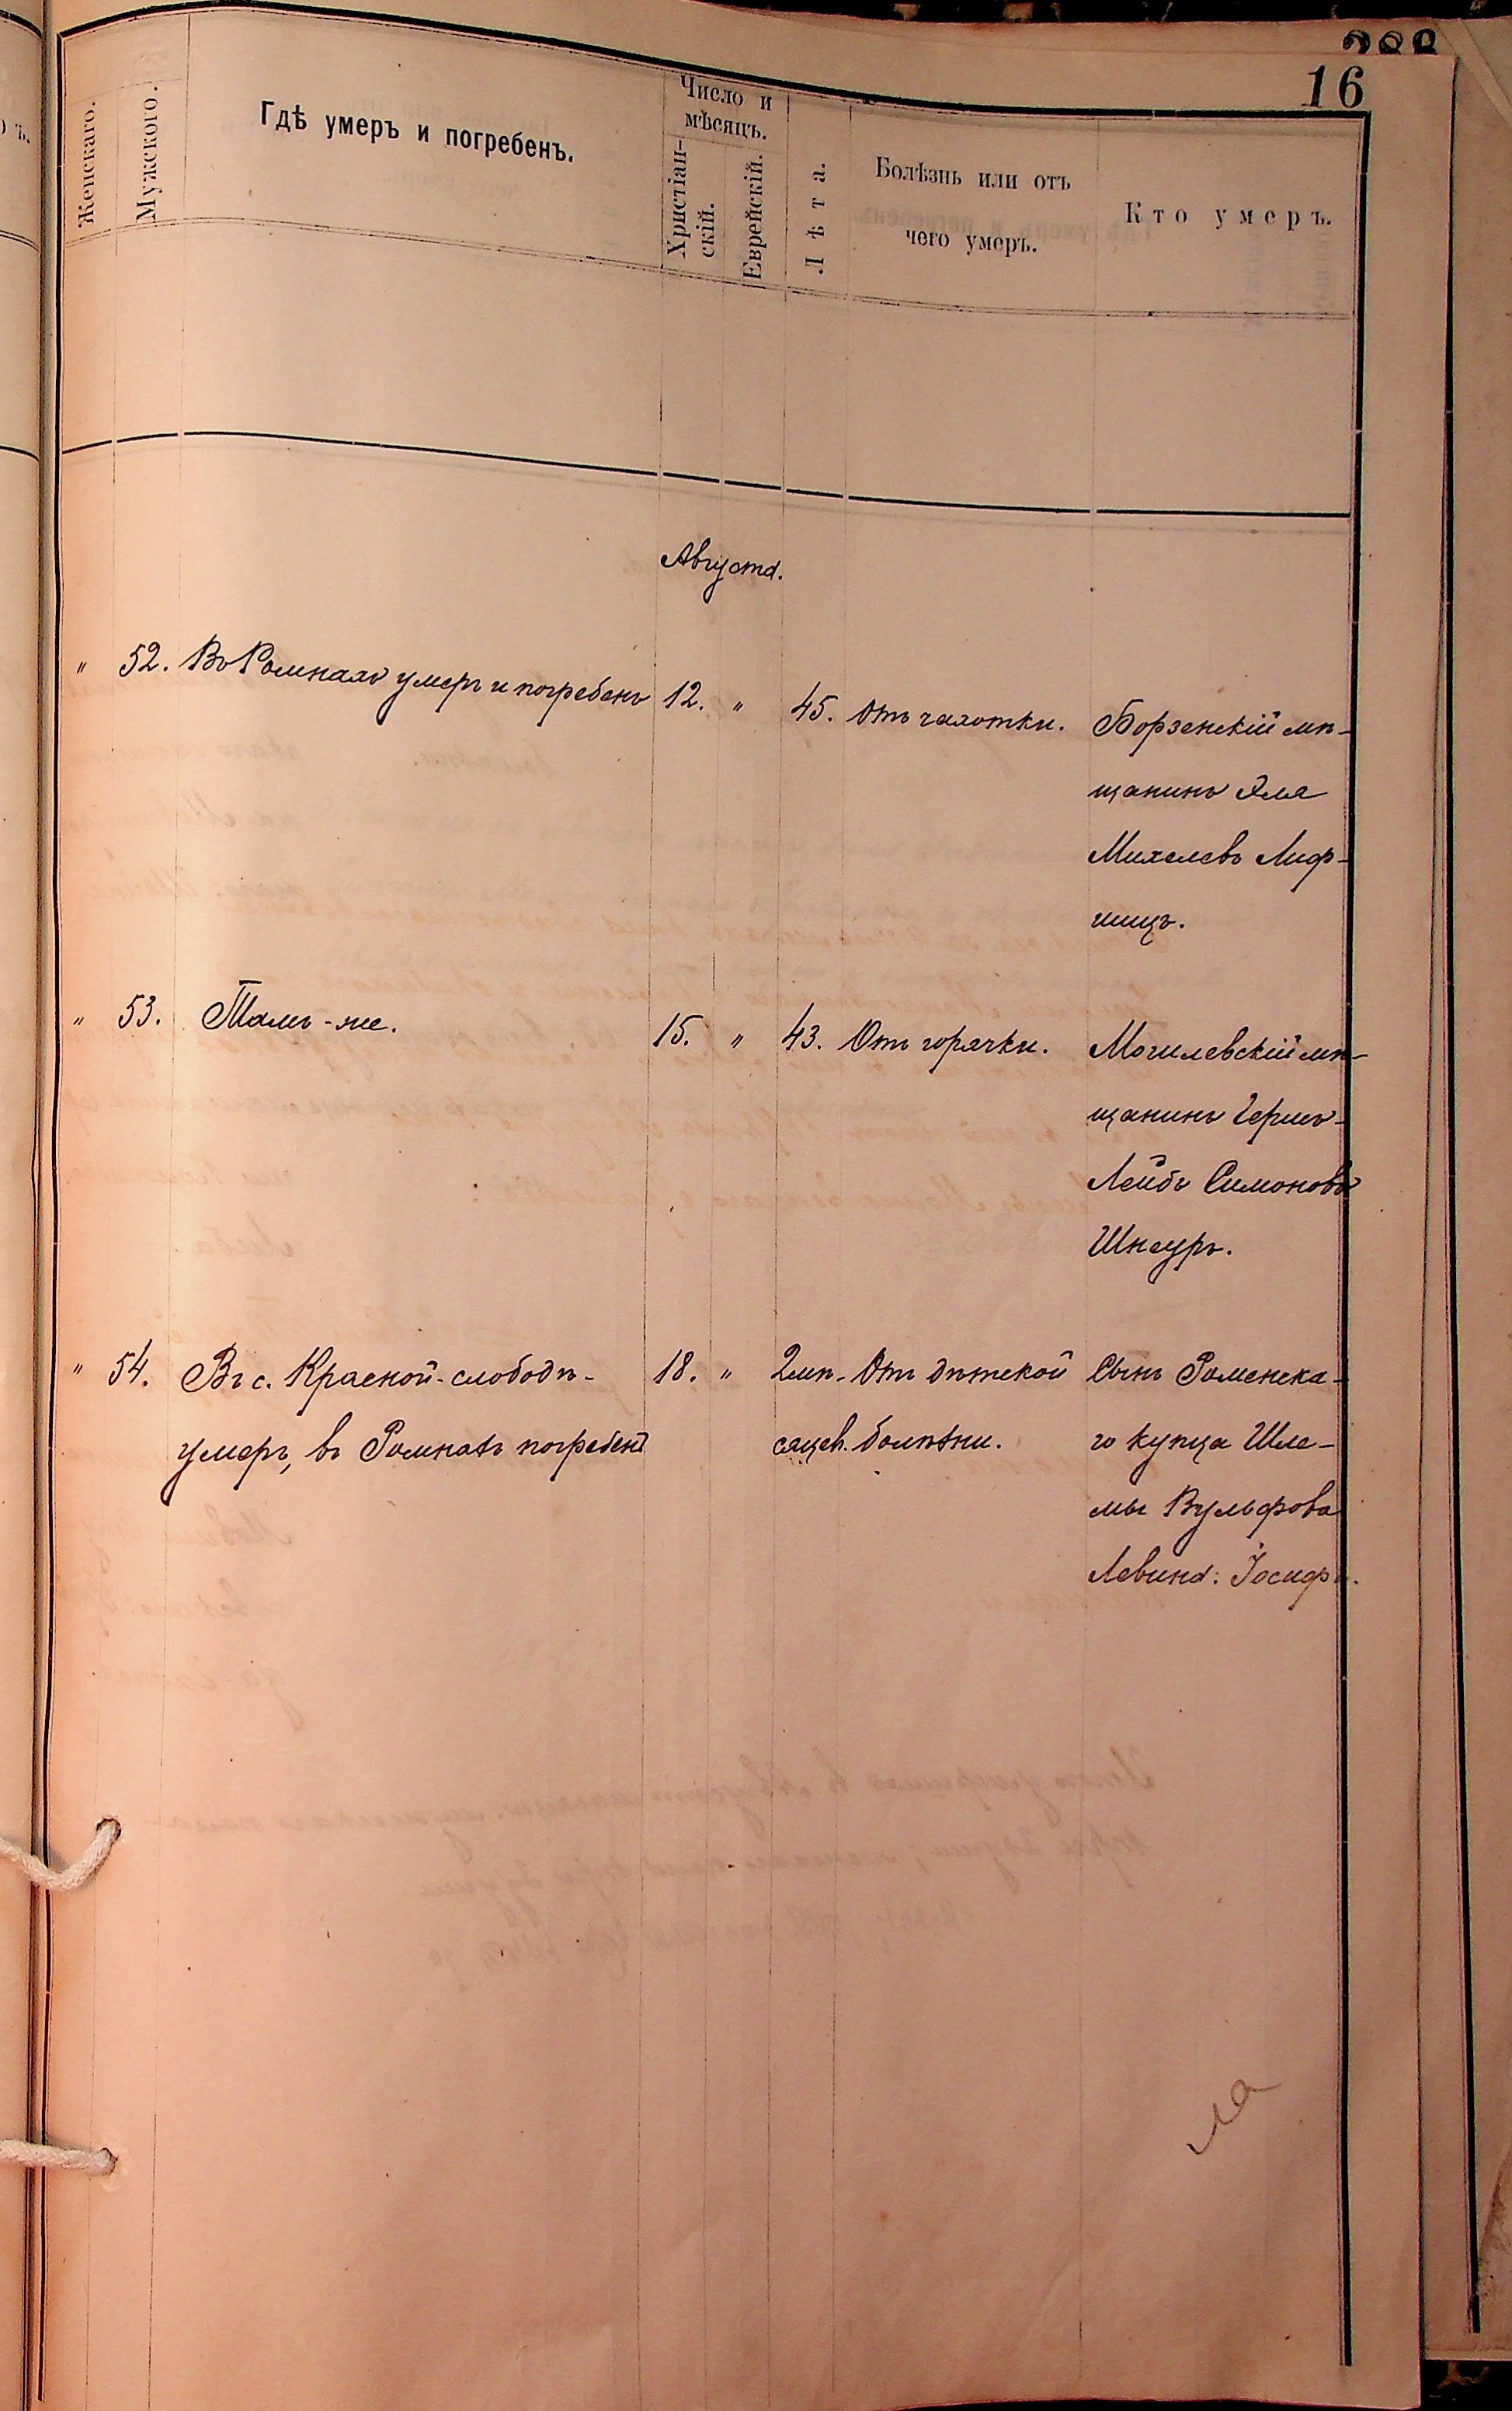 16
Женскаго.
Мужского.
Гдѣ умеръ и погребенъ.
Число и
мѣсяцъ.
Христіан-
скій.
Еврейскій.
Лѣта.
Болѣзнь или отъ
чего умеръ.
Кто умеръ.
Августа.
" 52. Въ Ромнахъ умеръ и погребенъ 12. " 45. Отъ чахотки. Борзенскій мѣ-
щанинъ Эля
Михелевъ Лиф-
шицъ.
" 53. Тамъ-же. 15. " 43. Отъ горячки. Могилевскій мѣ-
щанинъ Гершъ-
Лейбъ Симоновъ
Шнеуръ.
" 54. Въ с. Красной-слободѣ- 18. " 2 мѣ- Отъ дѣтской Сынъ Роменска-
умеръ, въ Ромнахъ погребенъ сяцев. болѣзни. го купца Шле-
мы Вульфова
Левина: Іосифъ.